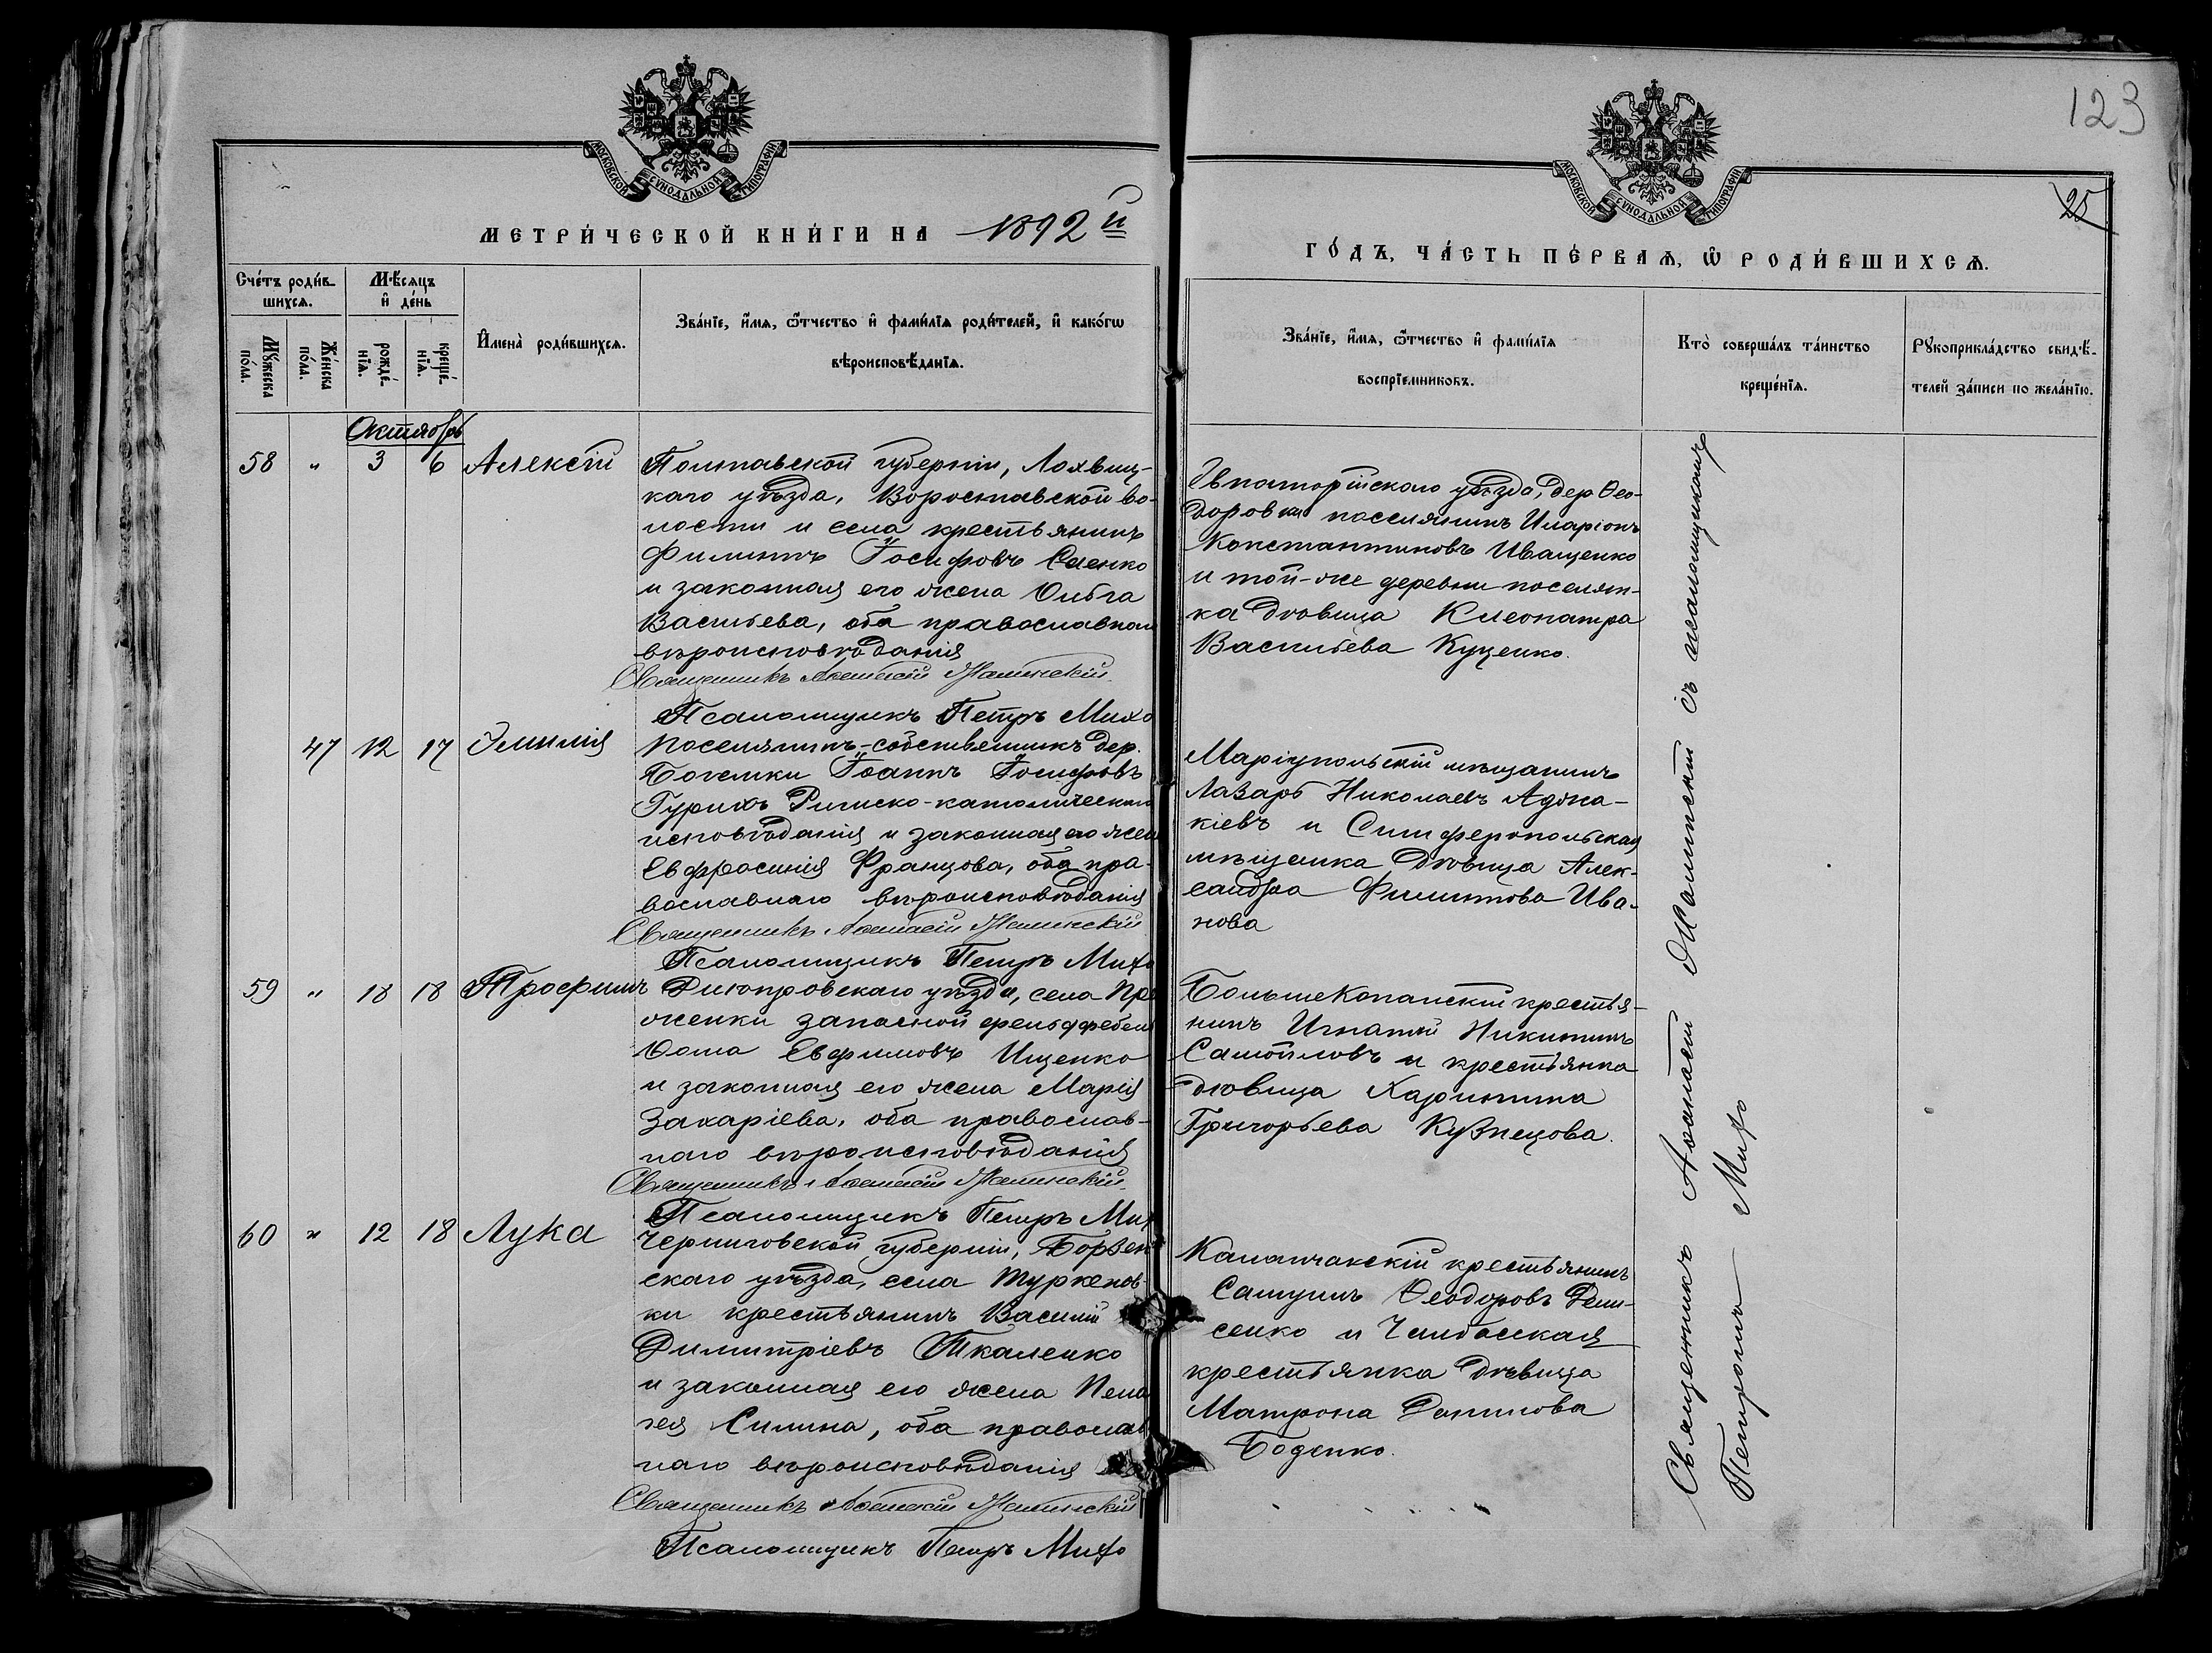 123
МОСКОВСКОЙ СѴНОДАЛЬНОЙ ТИПОГРАФІИ
МОСКОВСКОЙ СѴНОДАЛЬНОЙ ТИПОГРАФІИ
25
МЕТРИ́ЧЕСКОЙ КНИ́ГИ НА 1892й
ГО́ДЪ, ЧА́СТЬ ПЕ́РВАѦ, Ѡ РОДИ́ВШИХСѦ.
Сче́тъ роди́в-
шихсѧ.
Мѣ́сѧцъ
и҆ де́нь
Мꙋ́жеска
по́ла.
Же́нска
по́ла.
рожде́-
нїѧ.
креще́-
нїѧ.
И҆мена̀ роди́вшихсѧ.
Зва́нїе, и҆́мѧ, ѻ҆́тчество и҆ фами́лїѧ роди́телей, и҆ како́гѡ
вѣроисповѣ́данїѧ.
Зва́нїе, и҆́мѧ, ѻ҆́тчество и҆ фами́лїѧ
воспрїе́мниковъ.
Кто̀ соверша́лъ та́инство
креще́нїѧ.
Рꙋкоприкла́дство свидѣ́-
телей за́писи по жела́нїю.
Октябрь
58 " 3 6 Алексѣй
Полтавской губерніи, Лохвиц-
каго уѣзда, Вороставской во-
лости и села крестьянинъ
Филиппъ Іосифовъ Саенко
и законная его жена Ольга
Васильева, оба православнаго
вѣроисповѣданія
Священникъ Аѳанасій
Псаломщикъ Петръ Михо
Евпаторійскаго уѣзда, дер Ѳео-
доровки поселянинъ Иларіонъ
Константиновъ Иващенко
и той-же деревни поселян-
ка дѣвица Клеопатра
Васильева Куценко.
47 12 17 Эмилія
поселянинъ-собственникъ дер.
Богемки Іоаннъ Іосифовъ
Гурихъ Римско-католическаго
исповѣданія и законная его жена
Евфросинія Францова, оба пра-
вославнаго вѣроисповѣданія
Священникъ Аѳанасій
Псаломщикъ Петръ Михо
Маріупольскій мѣщанинъ
Лазарь Николаевъ Аджа-
кіевъ и Симферопольская
мѣщанка дѣвица Алек-
сандра Филиппова Ива-
нова
59 " 18 18 Трофимъ
Днѣпровскаго уѣзда, села Пре
женки запасной фельдфебель
Ѳома Евфимовъ Ищенко
и законная его жена Марія
Захаріева, оба православ-
наго вѣроисповѣданія
Священникъ Аѳанасій
Псаломщикъ Петръ Мих
БольшеКопанскій крестья-
нинъ Игнатій Никитинъ
Самойловъ и крестьянка
дѣвица Харитина
Григорьева Кузнецова.
60 " 12 18 Лука
Черниговской губерніи, Борзен
скаго уѣзда, села Туркенов-
ки крестьянинъ Василій
Димитріевъ Ткаленко
и законная его жена Пела
гея Силина, оба православ
наго вѣроисповѣданія
Священникъ Аѳанасій
Псаломщикъ Петръ Михо
Каланчакскій крестьянинъ
Самуилъ Ѳеодоровъ Дени-
сенко и Чалбасская
крестьянка дѣвица
Матрона Данилова
Боденко.
Священникъ Аѳанасій съ псаломщикомъ
Петромъ Михо